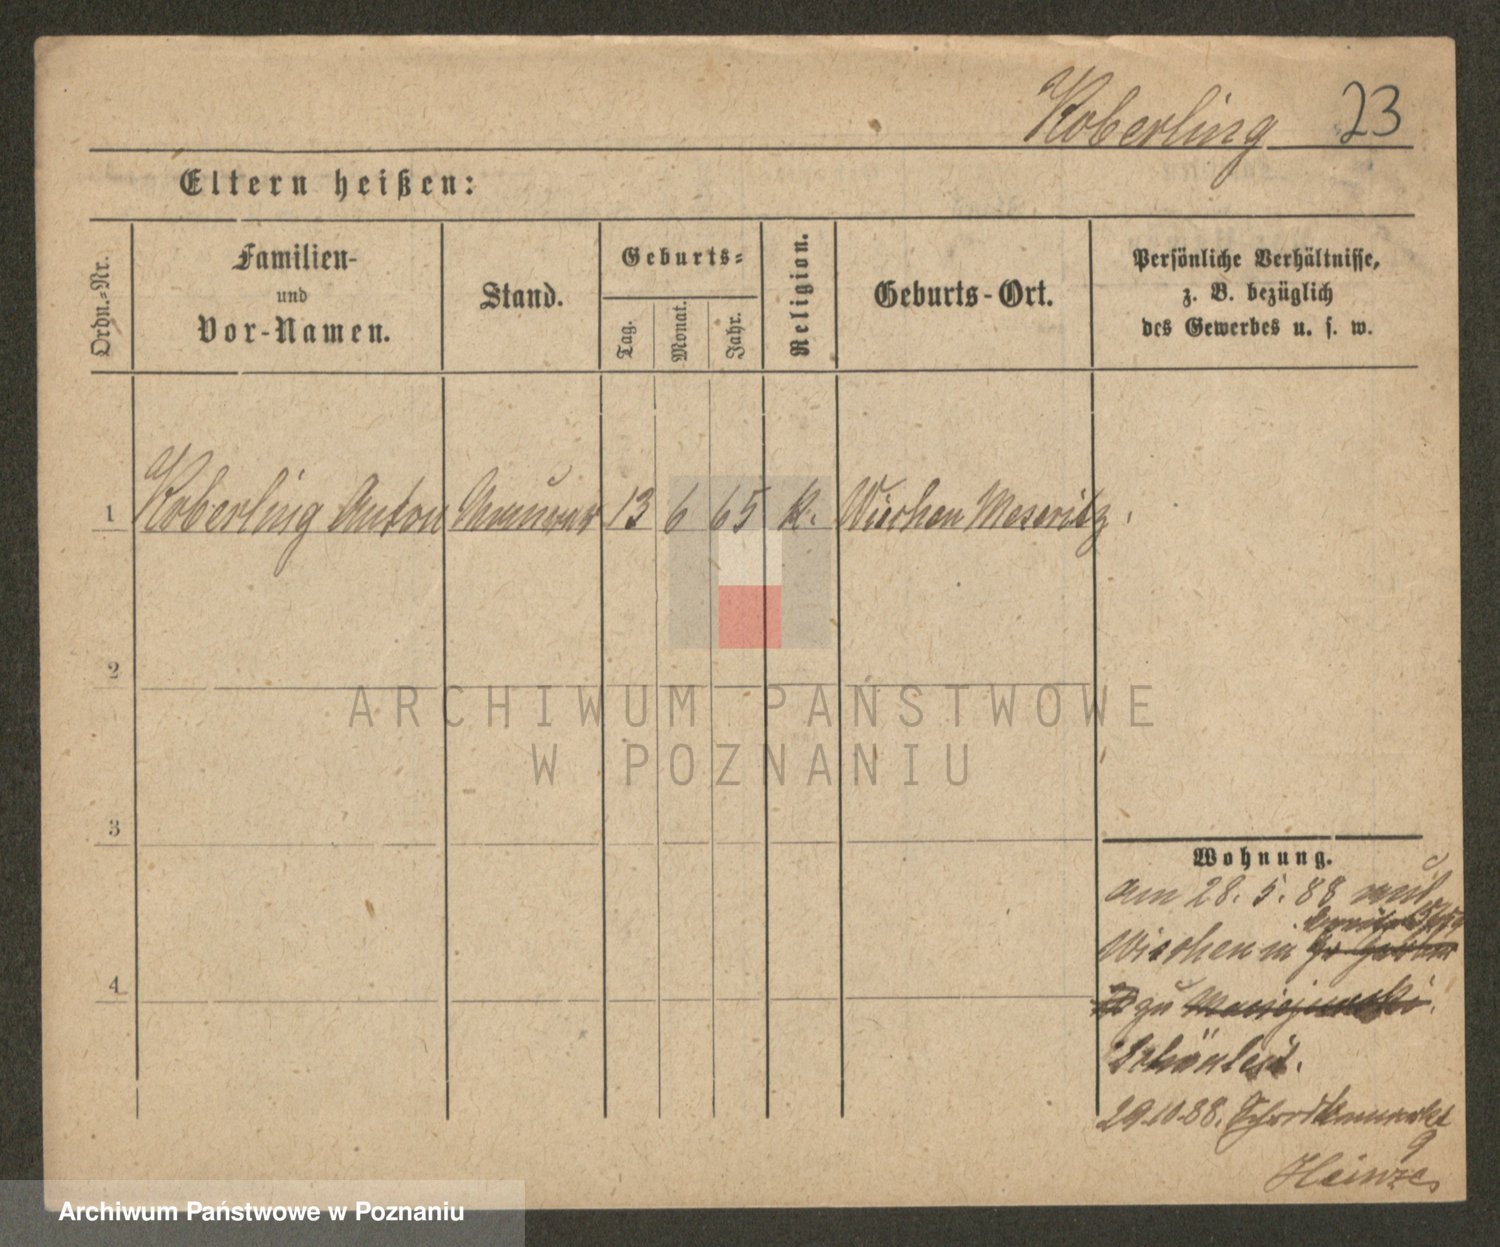 Koberling 23
Eltern heißen:
Ordn.-Nr.
Familien-
und
Vor-Namen.
Stand.
Geburts-
Tag.
Monat.
Jahr.
Religion.
Geburts-Ort.
Persönliche Verhältnisse,
z. B. bezüglich
des Gewerbes u. s. w.
1 Koberling Anton Maurer 13 6 65 K. Wischen Meseritz.
2
3
4
Wohnung.
am 28. 5. 88 auf
Wischen in
zu
Schönleit.
29.10.88.
9
Heinze
ARCHIWUM PAŃSTWOWE
W POZNANIU
Archiwum Państwowe w Poznaniu